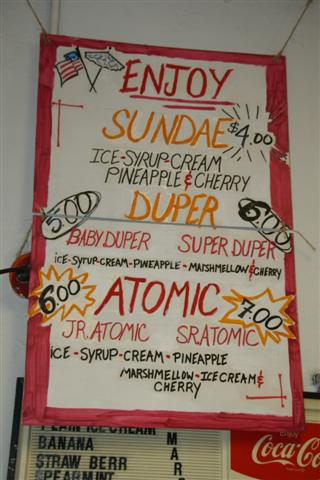 ENJOY
SUNDAE $4.00
ICE-SYRUP-CREAM
PINEAPPLE & CHERRY
5.00 DUPER 6.00
BABY DUPER SUPER DUPER
iCE-SYRUP-CREAM-PINEAPPLE-MARSHMELLOW & CHERRY
6.00 ATOMIC 7.00
JR.ATOMIC SR.ATOMIC
iCE-SYRUP-CREAM-PINEAPPLE
MARSHMELLOW-ICECREAM &
CHERRY
PLAIN ICE CREAM
BANANA
STRAW BERR
SPEARMINT
M
A
R
S
Enjoy
Coca-Cola